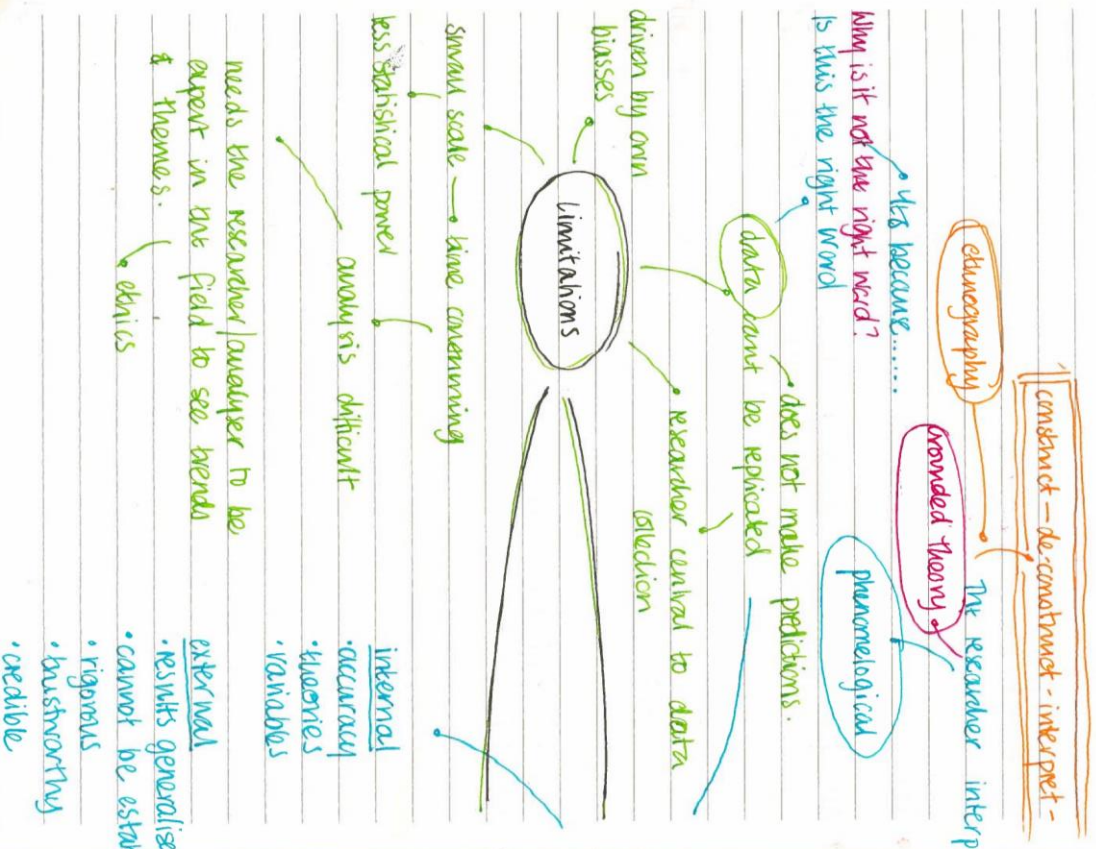 construct - de-construct - interpret -
ethnography
The researcher interp
grounded theory
phenomelogical
its because......
Why is it not the right word?
Is this the right word
does not make predictions.
data cant be replicated
researcher central to data
collection
driven by own
biasses
limitations
small scale — time consuming
less statistical power
analysis difficult
needs the researcher/analyser to be
expert in the field to see trends
& themes.
ethics
internal
• accuracy
• theories
• variables
external
• results generalise
• cannot be estab
• rigorous
• trustworthy
• credible